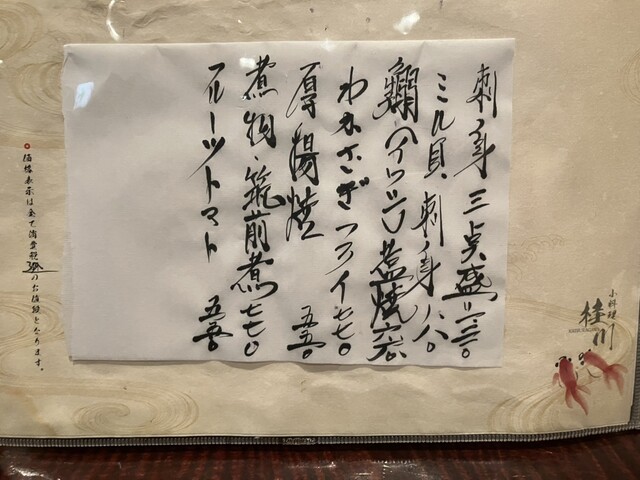 刺身三点盛り 一三二〇
ミル貝 刺身 八八〇
(イワシ)塩焼
わかさぎフライ 七七〇
厚揚焼 五五〇
煮物・筑前煮 七七〇
フルーツトマト 五五〇
価格表示は全て消費税のお値段となります。
小料理
桂川